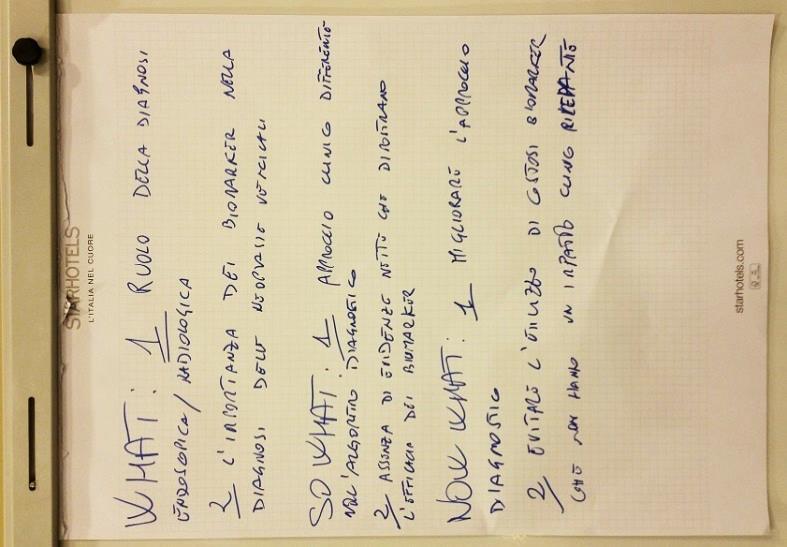 STARHOTELS
L'ITALIA NEL CUORE
WHAT: 1 RUOLO DELLA DIAGNOSI
ENDOSCOPICA/RADIOLOGICA
2 L'IMPORTANZA DEI BIOMARKER NELLA
DIAGNOSI DELLE NEOPLASIE VESCICALI
SO WHAT: 1 APPROCCIO CLINICO DIFFERENTE
NELL'ALGORITMO DIAGNOSTICO
2 ASSENZA DI EVIDENZE NETTE CHE DIMOSTRANO
L'EFFICACIA DEI BIOMARKER
NOW WHAT: 1 MIGLIORARE L'APPROCCIO
DIAGNOSTICO
2 EVITARE L'UTILIZZO DI COSTOSI BIOMARKER
CHE NON HANNO UN IMPATTO CLINICO RILEVANTE
starhotels.com